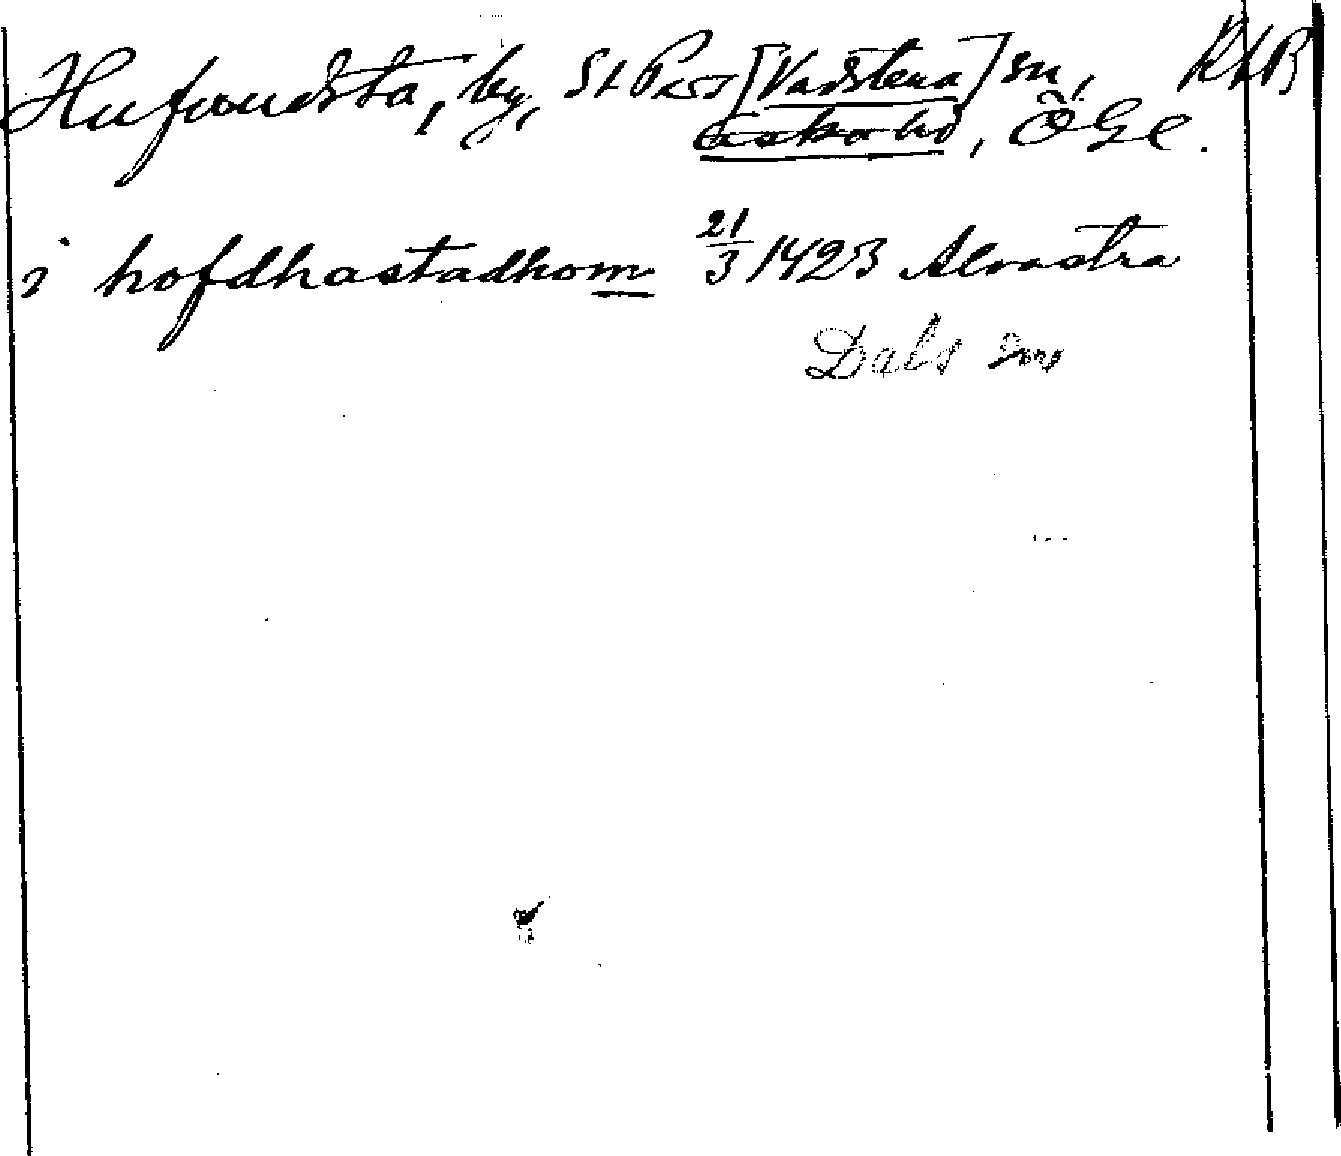 Hufvudsta, by, St Pers [Vadstena] sn, RAB
Aska hd, ÖGl.
i hofdhastadhom 21/3 1423 Alvastra
Dals sn